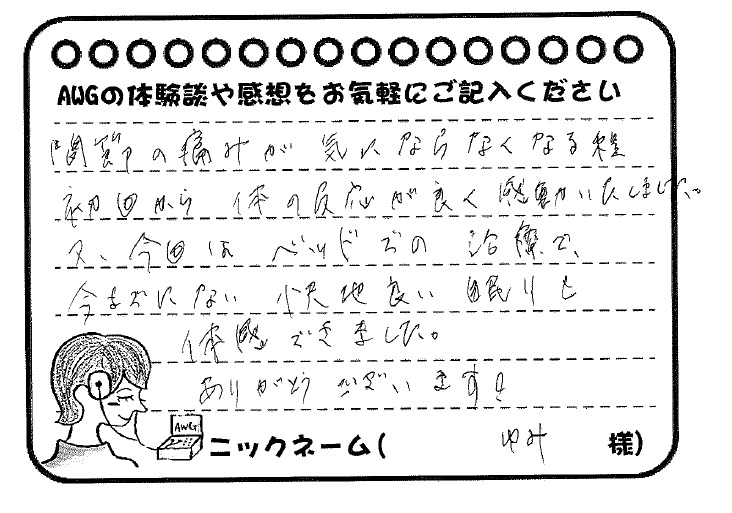 AWGの体験談や感想をお気軽にご記入ください
関節の痛みが 気にならなくなる程
初回から 体の反応が良く感動いたしました。
又、今回は ベッドでの 治療で、
今までにない 心地良い 眠りを
体感できました。
ありがとうございます!
AWG
ニックネーム( ゆみ 様)